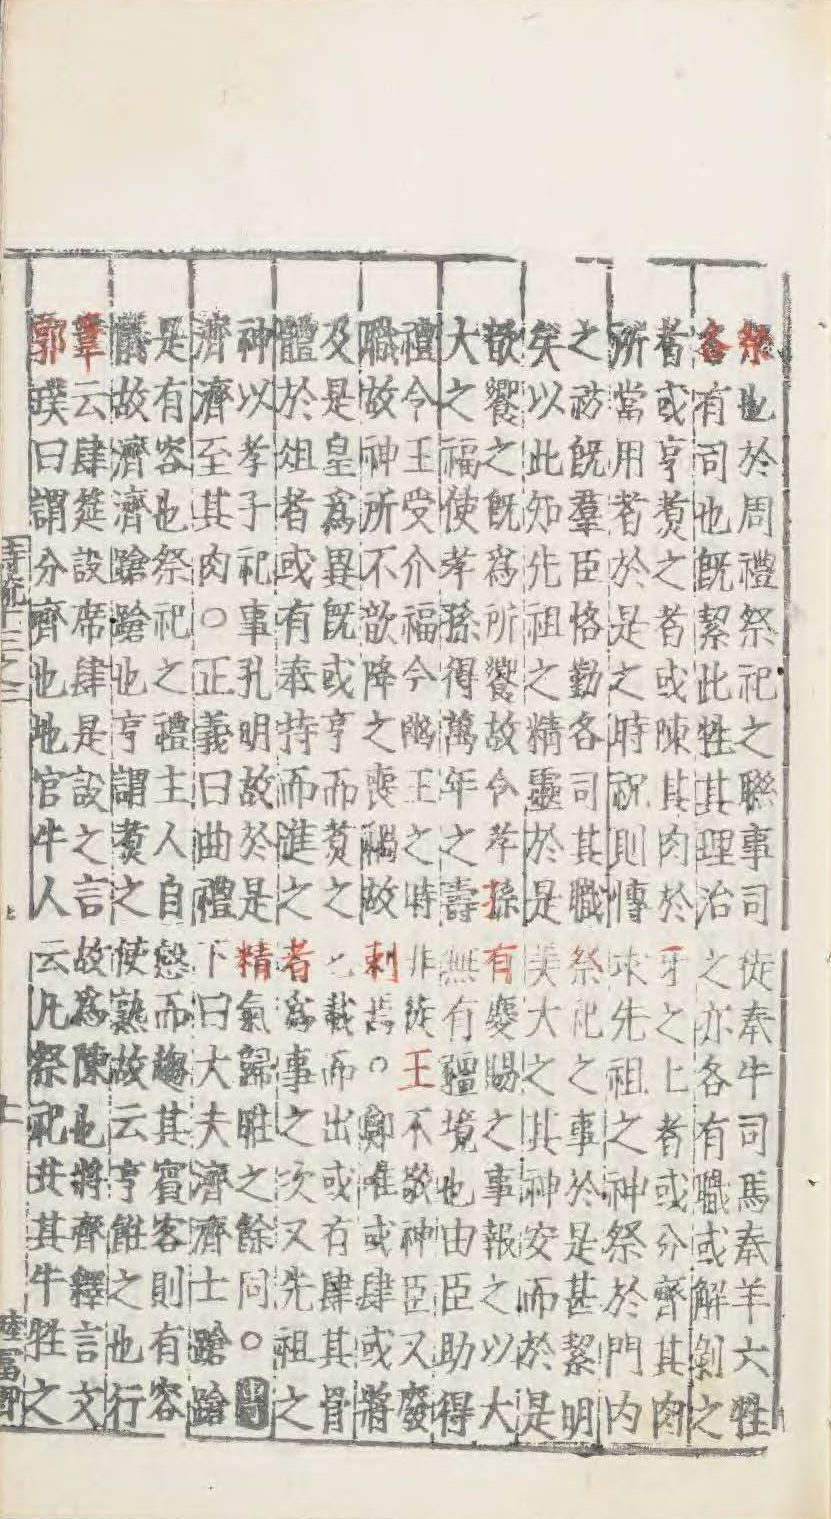 祭也於周禮祭祀之聯事司徒奉牛司馬奉羊六牲
各有司也既絜此牲其理治之亦各有職或解剝之
者或亨煑之者或陳其肉於牙之上者或分齊其肉
所當用者於是之時祝則慱求先祖之神祭於門內
之祊既羣臣恪勤各司其職祭祀之事於是甚絜明
矣以此知先祖之精靈於是美大之其神安而於是
歆饗之既爲所饗故令孝孫有慶賜之事報之以大
大之福使孝孫得萬年之壽無有疆境也由臣助得
禮令王受介福今幽王之時非徒王不敬神臣又廢
職故神所不歆降之喪禍故刺焉○鄭唯或肆或將
及是皇爲異既或亨而煑之匕載而出或有肆其骨
體於俎者或有奉持而進之者爲事之次又先祖之
神以孝子祀事孔明故於是精氣歸暀之餘同○
濟濟至其肉○正義曰曲禮下曰大夫濟濟士蹌蹌
是有容也祭祀之禮主人自慤而趨其賓客則有容
儀故濟濟蹌蹌也亨謂煑之使熟故云亨飪之也行
葦云肆筵設席肆是設之言故爲陳也將齊釋言文
郭璞曰謂分齊也地官牛人云凡祭祀共其牛牲之
寺䟽十三之二